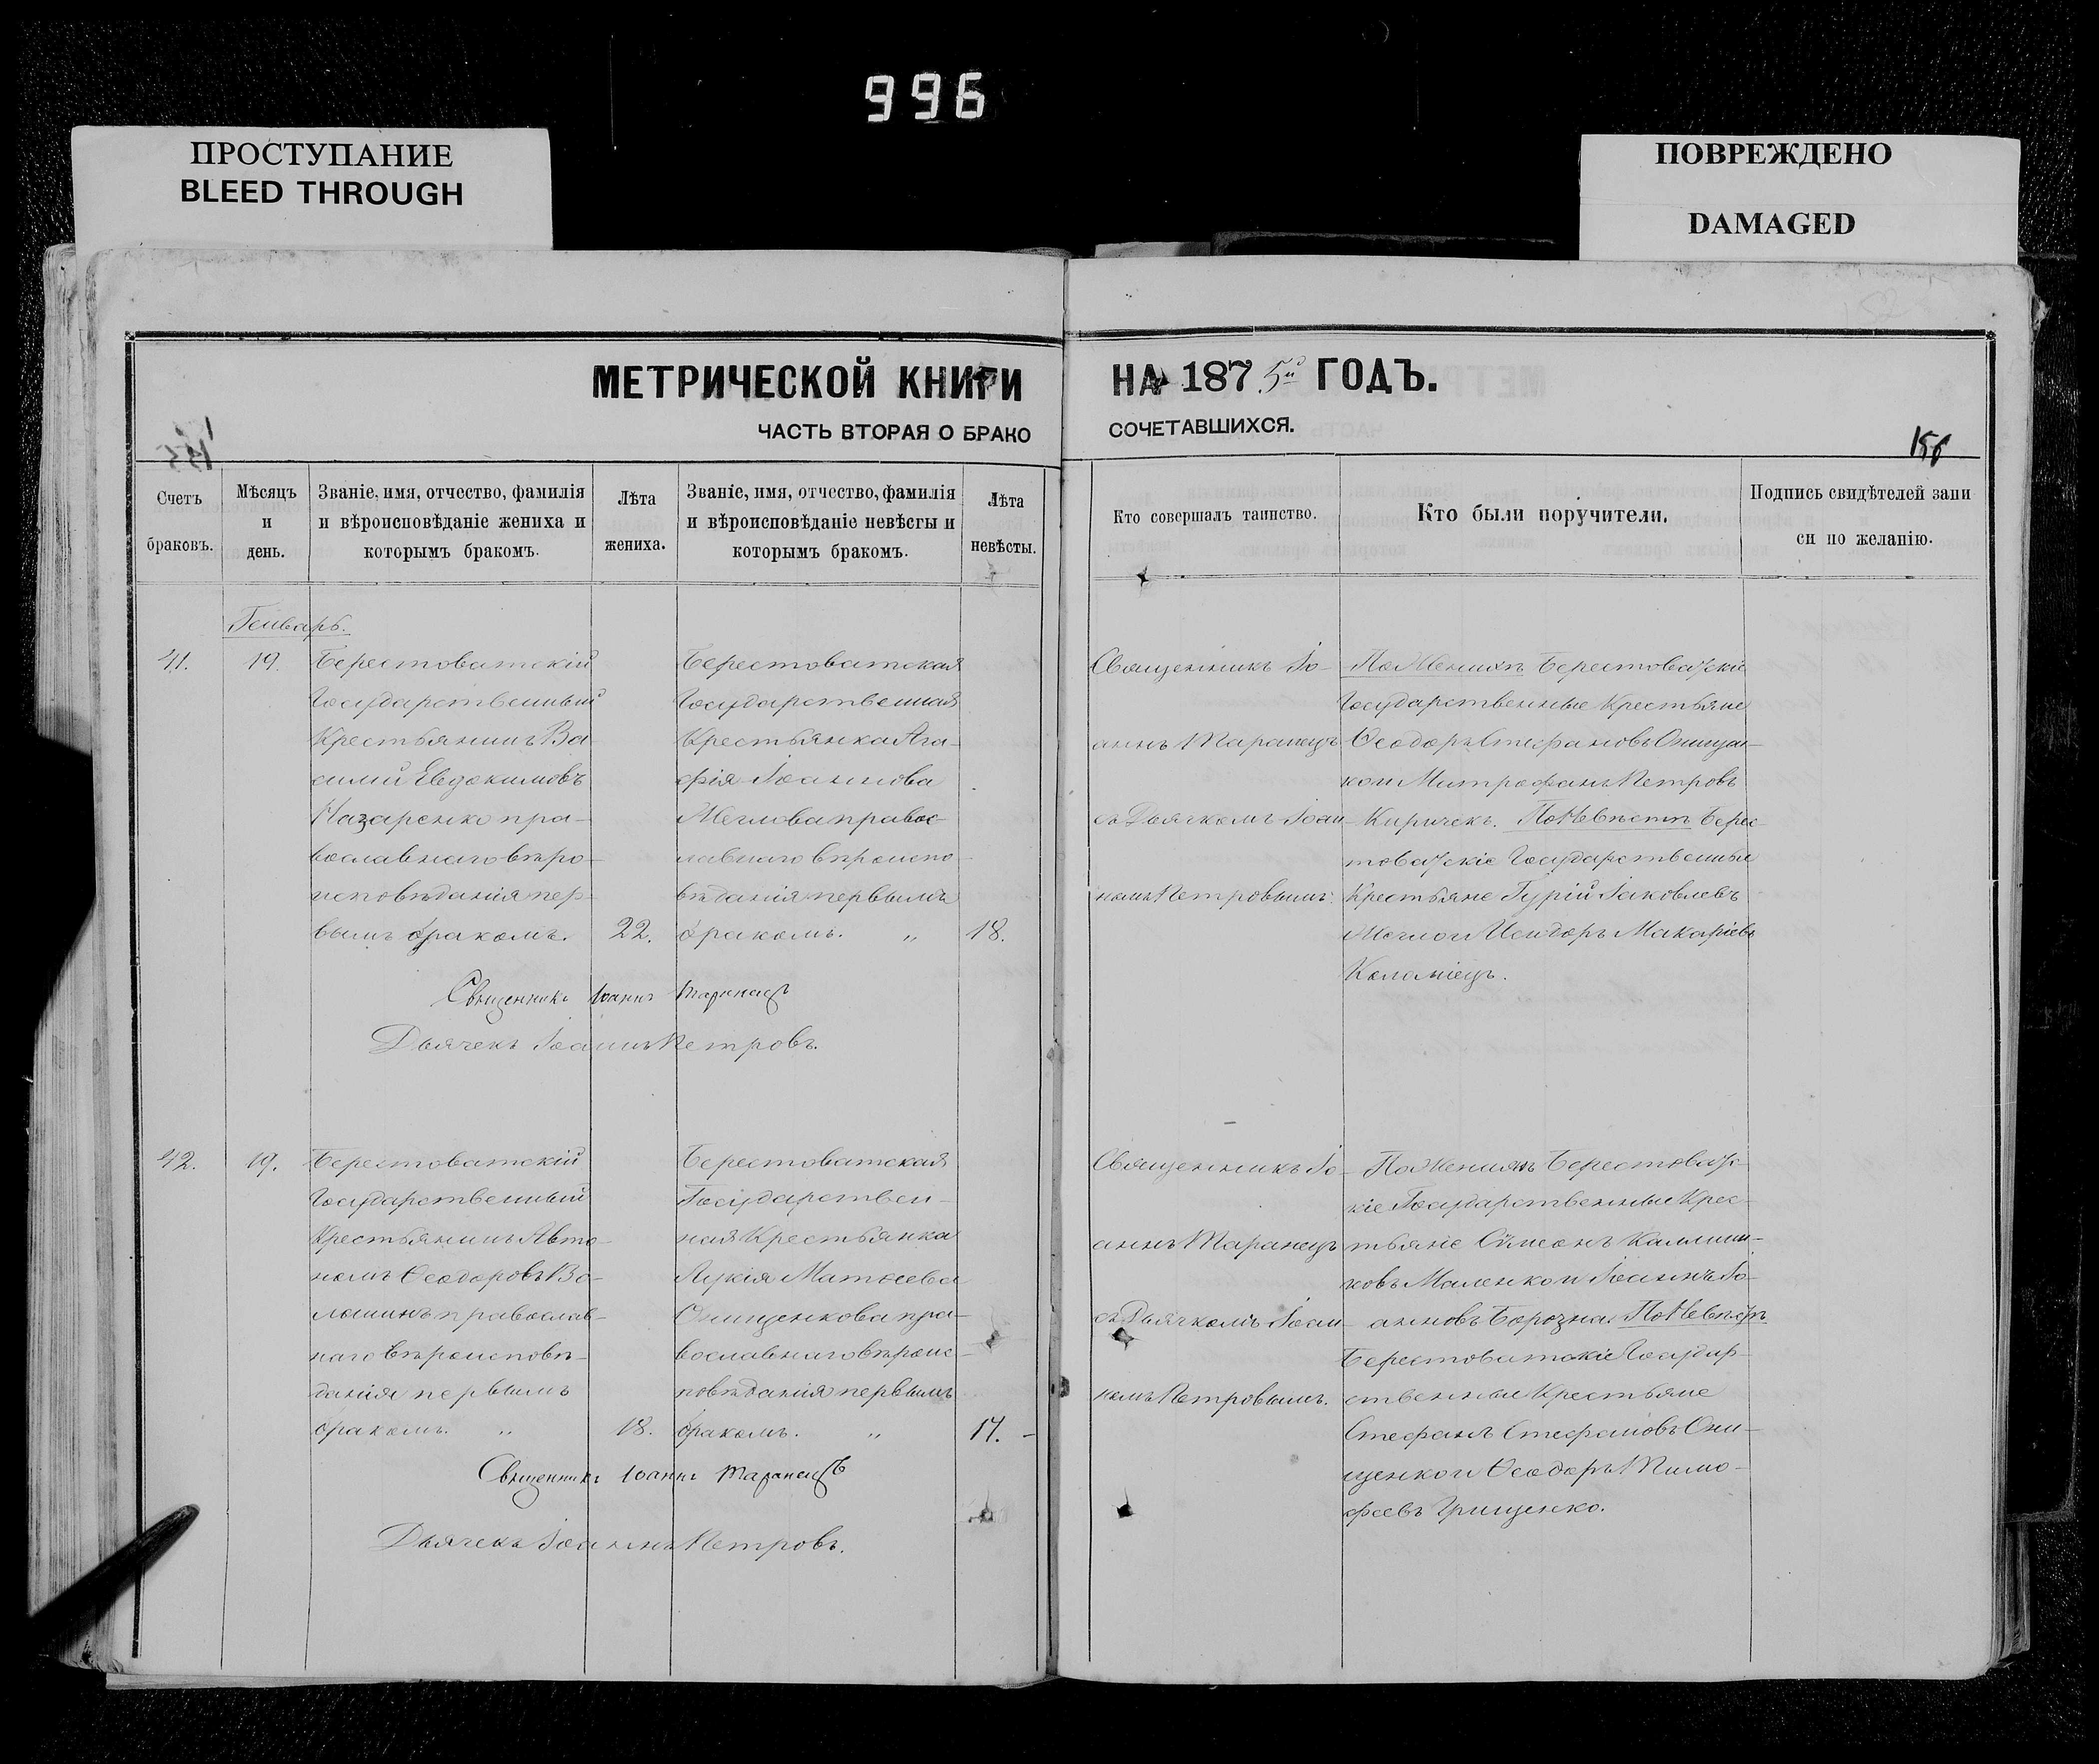 996
ПРОСТУПАНИЕ
BLEED THROUGH
ПОВРЕЖДЕНО
DAMAGED
МЕТРИЧЕСКОЙ КНИГИ НА 1875й ГОДЪ.
ЧАСТЬ ВТОРАЯ О БРАКО СОЧЕТАВШИХСЯ.
156
Счетъ
браковъ.
Мѣсяцъ
и
день.
Званіе, имя, отчество, фамилія
и вѣроисповѣданіе жениха и
которымъ бракомъ.
Лѣта
жениха.
Званіе, имя, отчество, фамилія
и вѣроисповѣданіе невѣсты и
которымъ бракомъ.
Лѣта
невѣсты.
Кто совершалъ таинство.
Кто были поручители.
Подпись свидѣтелей запи
си по желанію.
Генварь.
41.
19.
Берестоватскій
Государственный
Крестьянинъ Ва-
силий Евдокимовъ
Назаренко пра-
вославнаго вѣро-
исповѣданія пер-
вымъ бракомъ.
22.
Берестоватская
Государственная
Крестьянка Ага-
фія Іоаннова
Меглова правос-
лавнаго вѣроиспо-
вѣданія первымъ
бракомъ. „
18.
Священникъ Іо-
аннъ Таранецъ
съ Дьячкомъ Іоан-
номъ Петровымъ.
По Женихѣ Берестоватскіе
Государственные Крестьяне
Ѳеодоръ Стефановъ Онищен-
ко и Митрофанъ Петровъ
Киричекъ. По Невѣстѣ Берес-
товатскіе Государственные
Крестьяне Гурій Іаковлевъ
Мегло и Исидоръ Макаріевъ
Коломіецъ.
Священникъ Іоаннъ Таранецъ
Дьячекъ Іоаннъ Петровъ.
42.
19.
Берестоватскій
Государственный
Крестьянинъ Авто-
номъ Ѳеодоровъ Во-
лошинъ православ-
наго вѣроисповѣ-
данія первымъ
бракомъ. „
18.
Берестоватская
Государствен-
ная Крестьянка
Лукія Матѳеева
Онищенкова пра-
вославнаго вѣроис-
повѣданія первымъ
бракомъ. „
17.
Священникъ Іо-
аннъ Таранецъ
съ Дьячкомъ Іоан-
номъ Петровымъ.
По Женихѣ Берестоват-
кіе Государственные Крес-
тьяне Сѵмеонъ Каллини-
ковъ Маленко и Іоаннъ Іо-
анновъ Борозна. По Невѣстѣ
Берестоватскіе Государ-
ственные Крестьяне
Стефанъ Стефановъ Они-
щенко и Ѳеодоръ Тимо-
феевъ Грищенко.
Священникъ Іоаннъ Таранецъ
Дьячекъ Іоаннъ Петровъ.